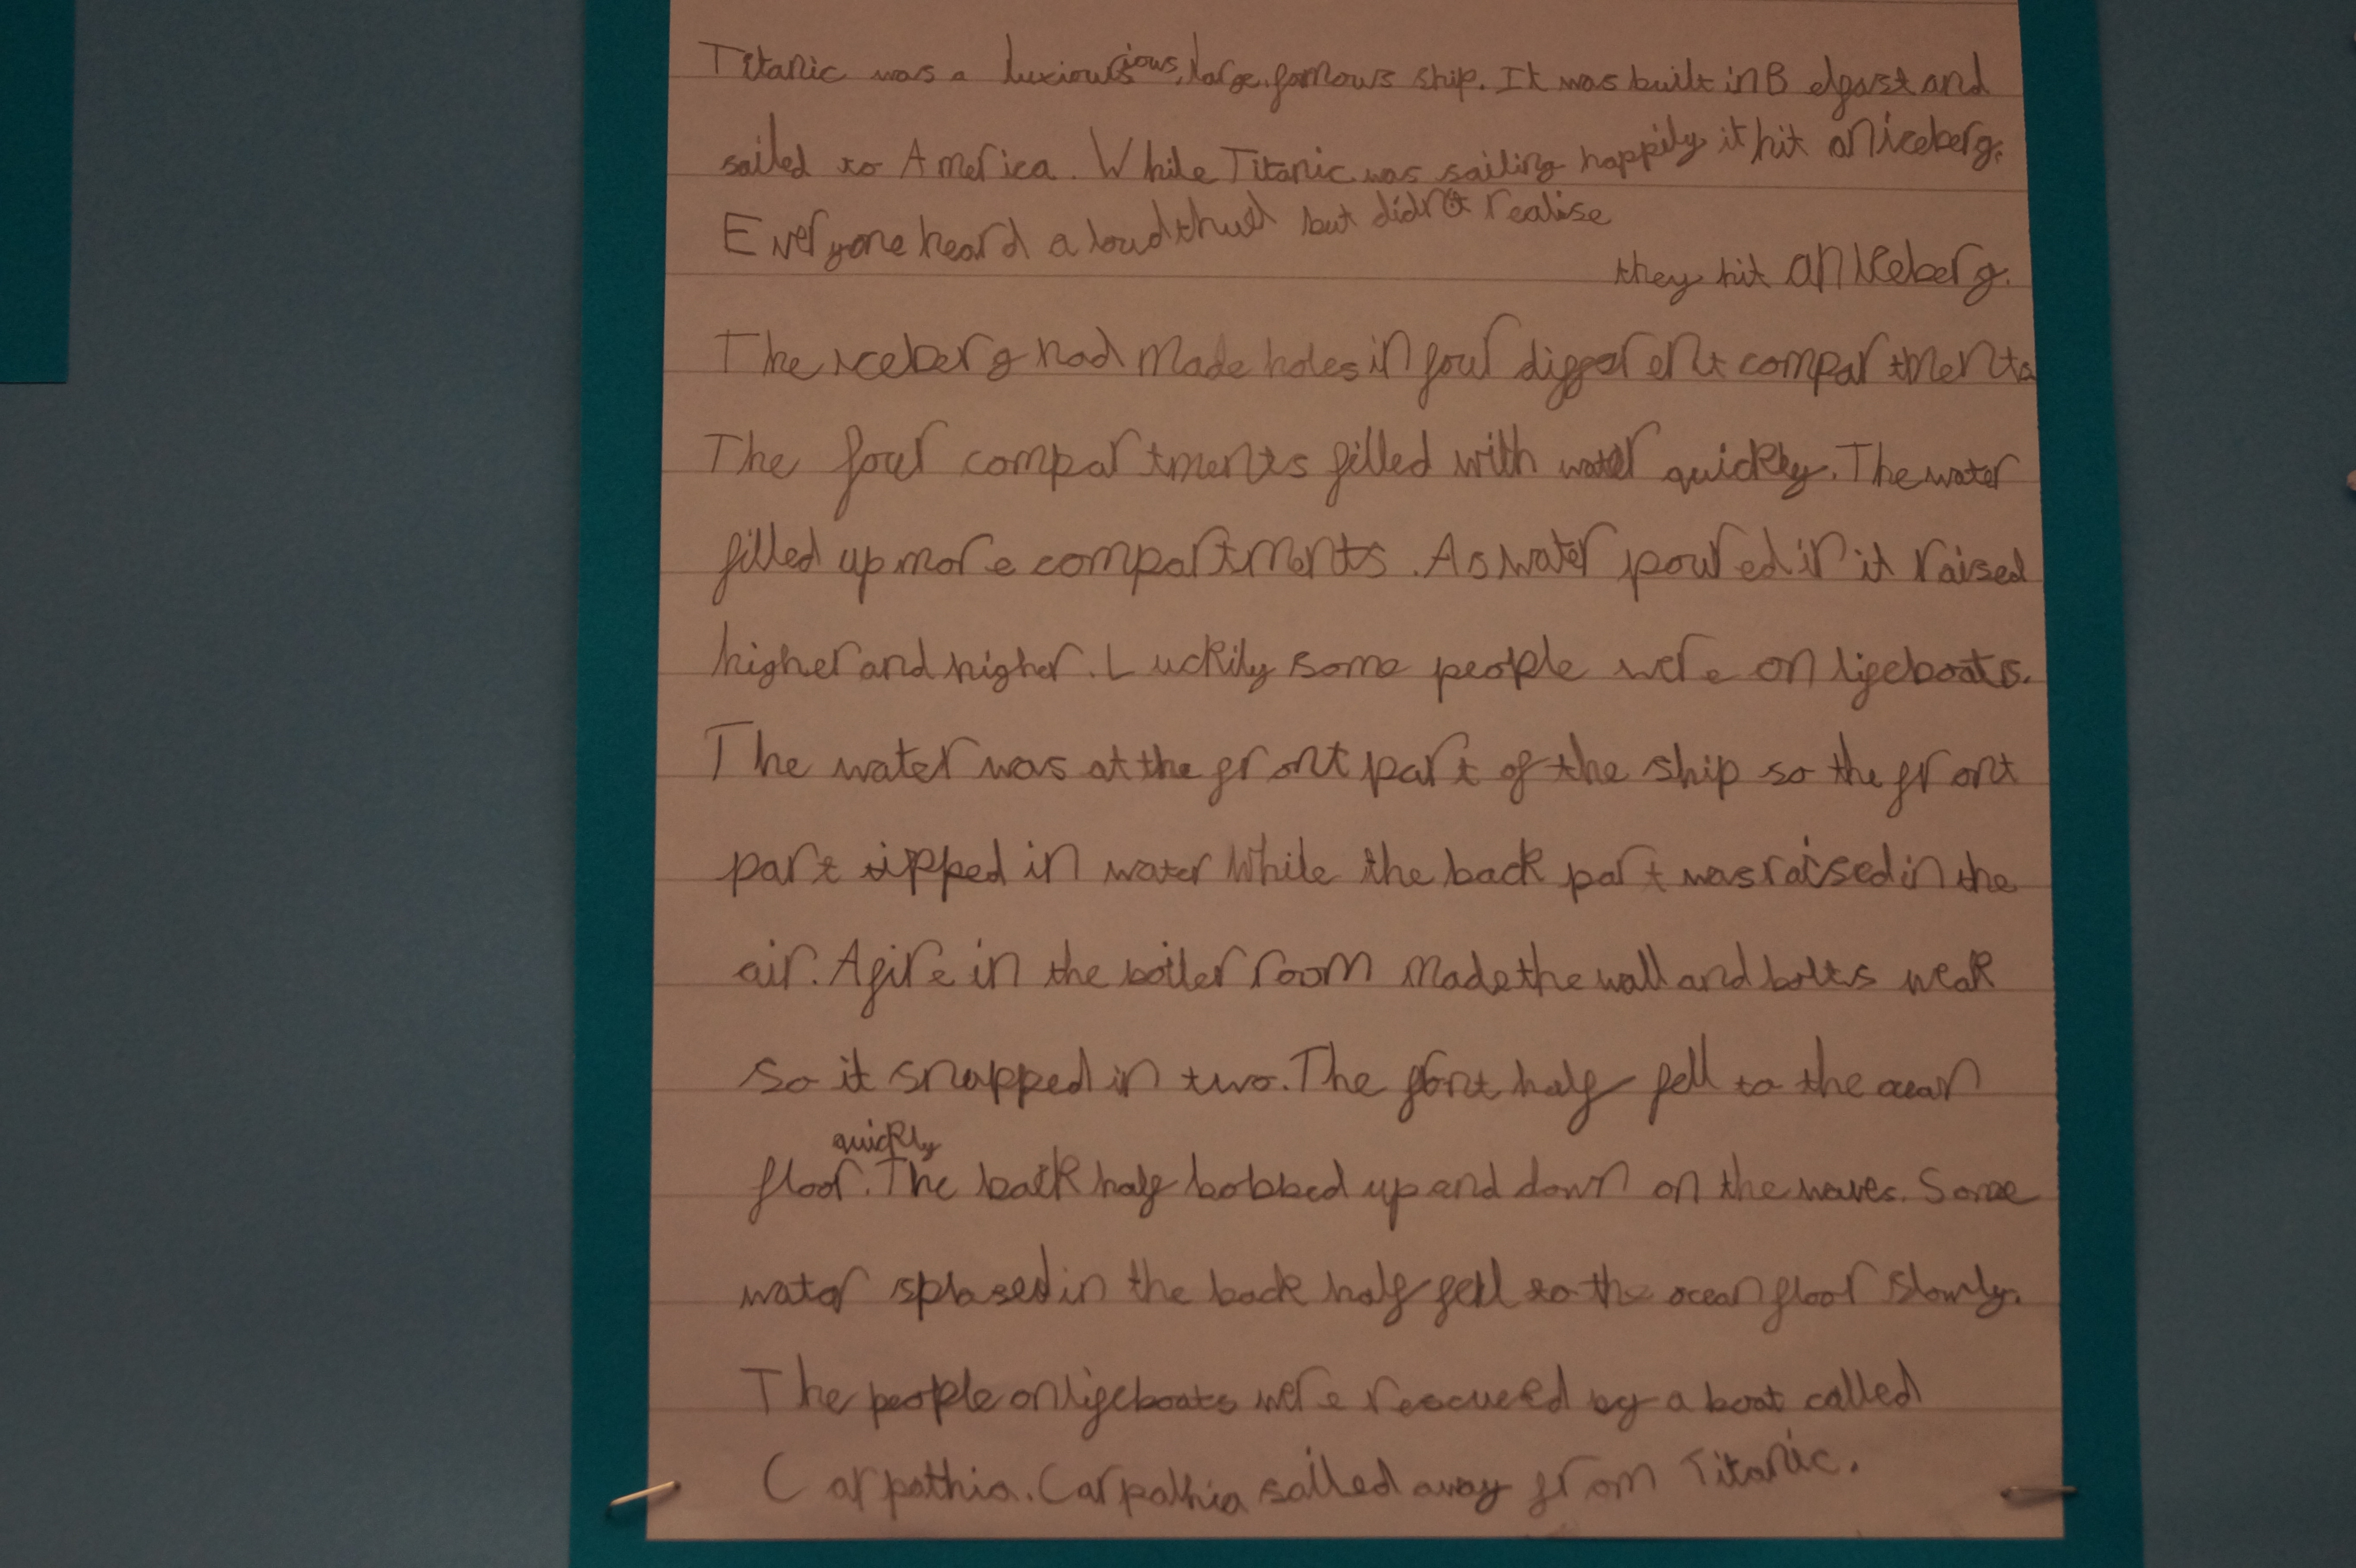 Titanic was a luxiourious, large, famous ship. It was built in Belfast and
sailed to America. While Titanic was sailing happily it hit an iceberg.
Everyone heard a loud thud but didn't realise
they hit an iceberg.
The iceberg had made holes in four different compartments.
The four compartments filled with water quickly. The water
filled up more compartments. As water poured in it raised
higher and higher. Luckily some people were on lifeboats.
The water was at the front part of the ship so the front
part tipped in water while the back part was raised in the
air. A fire in the boiler room made the wall and bolts weak
so it snapped in two. The front half fell to the ocean
quickly
floor. The back half bobbed up and down on the waves. Some
water splased in the back half fell to the ocean floor slowly.
The people on lifeboats were rescued by a boat called
Carpathia. Carpathia sailed away from Titanic.